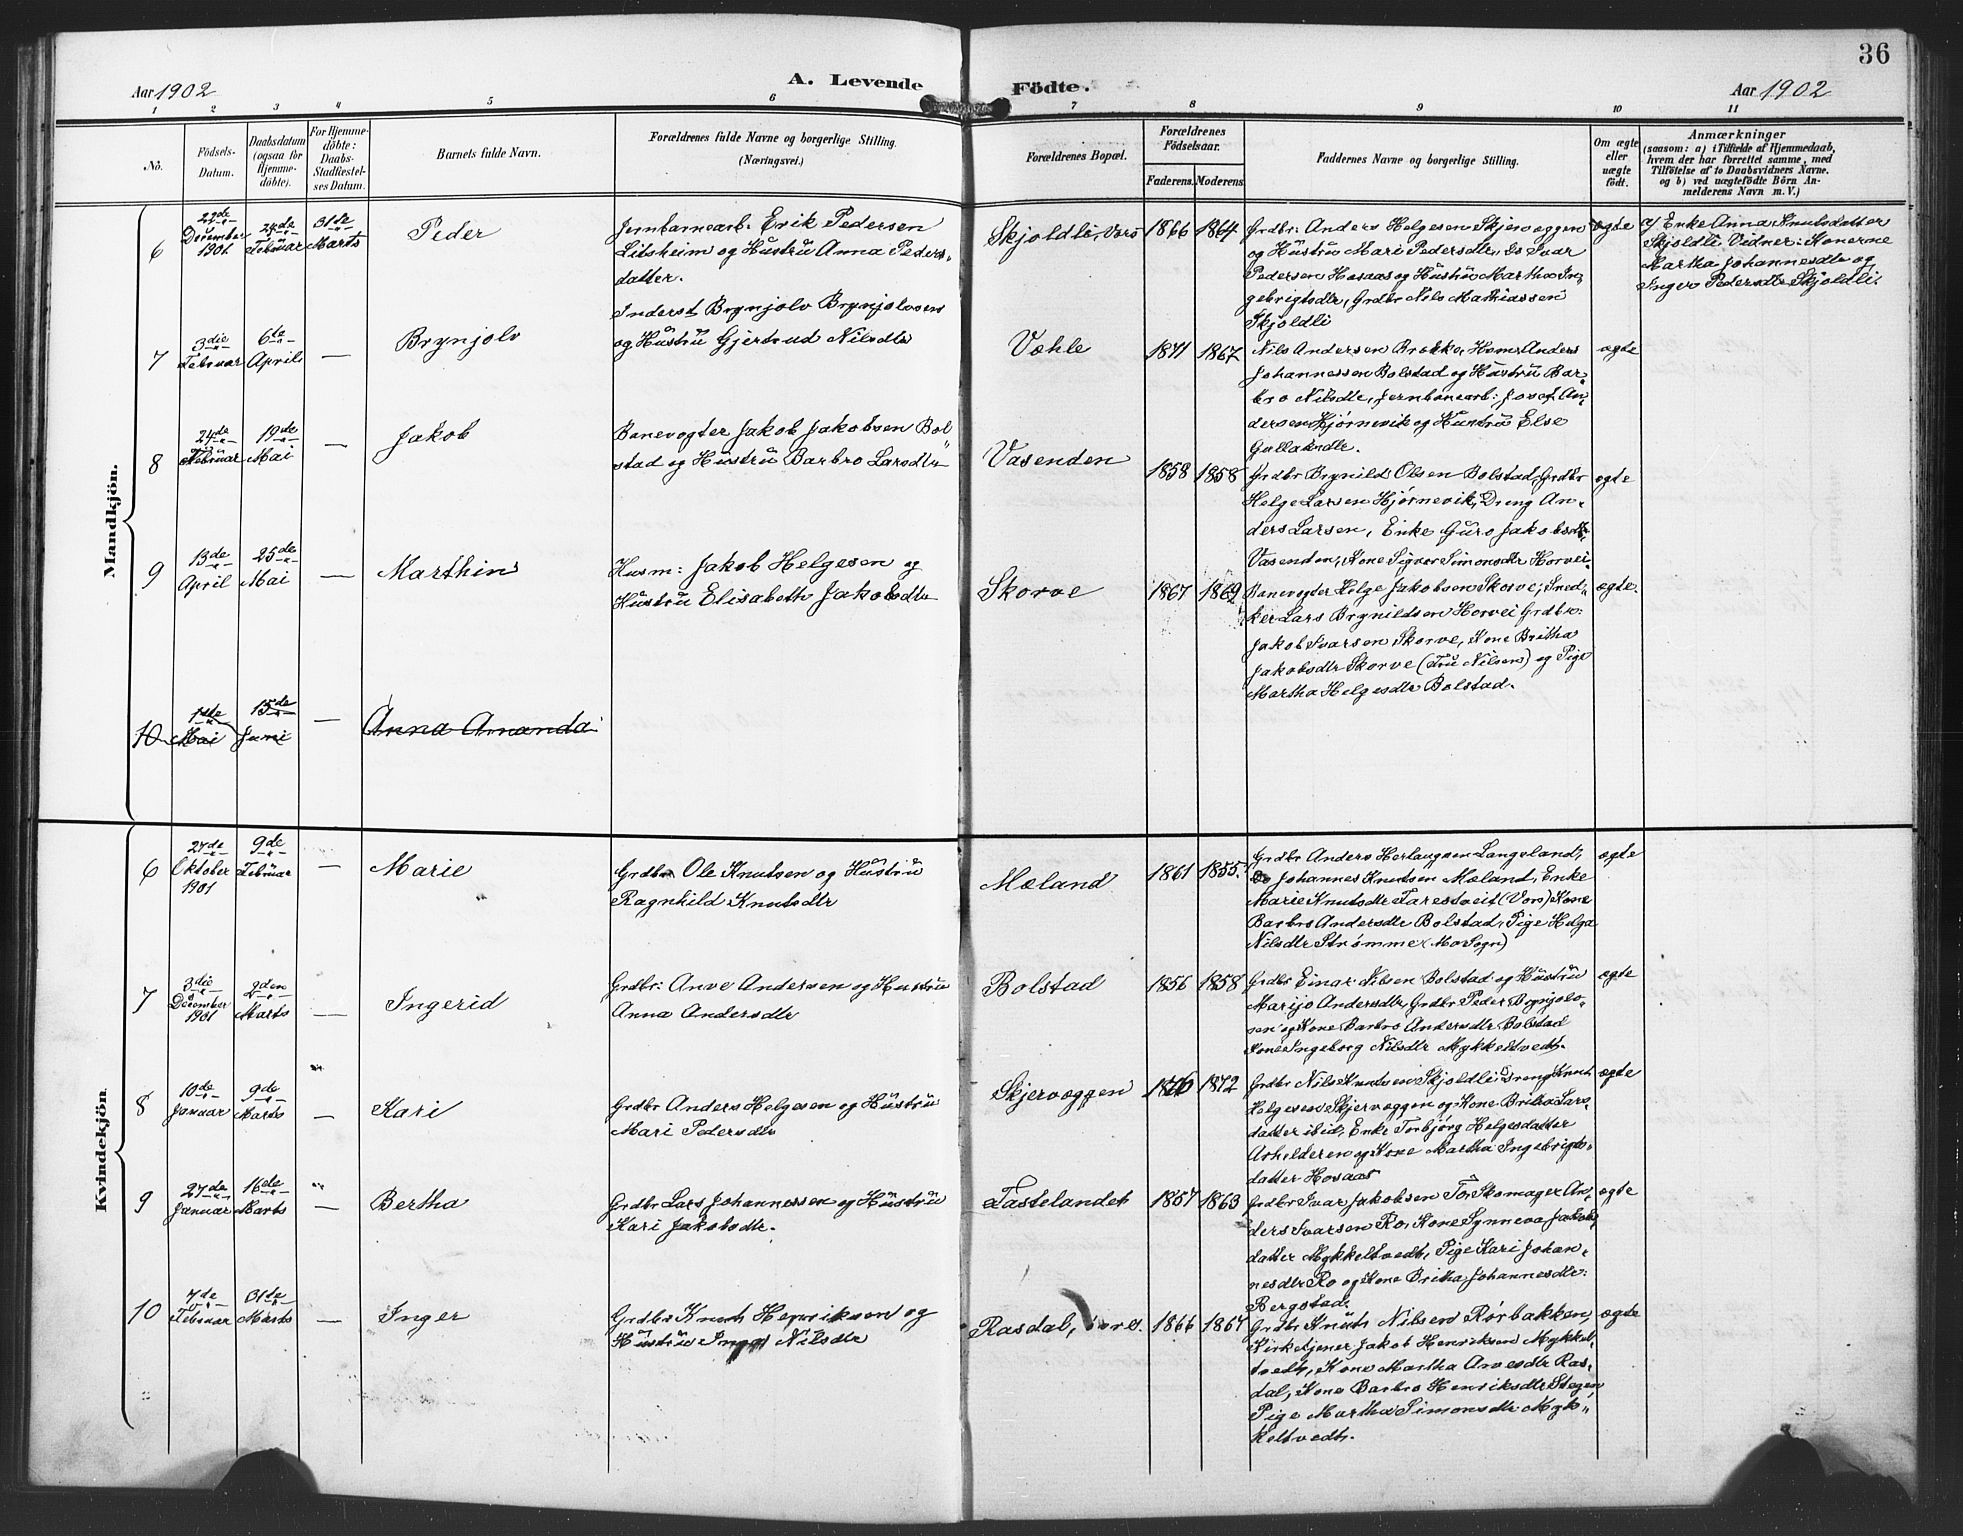 36
Aar 1902
A. Levende Födte.
Aar 1902
1 2 3 4 5 6 7 8 9 10 11
No.
Födsels-
Datum.
Daabsdatum
(ogsaa for
Hjemme-
döbte).
For Hjemme-
döbte:
Daabs-
Stadfæstel-
ses Datum.
Barnets fulde Navn.
Forældrenes fulde Navne og borgerlige Stilling.
(Næringsvei.)
Forældrenes Bopæl.
Forældrenes
Födselsaar.
Faderens.
Moderens.
Faddernes Navne og borgerlige Stilling.
Om ægte
eller
uægte
födt.
Anmærkninger
(saasom: a) i Tilfælde af Hjemmedaab,
hvem der har forrettet samme, med
Tilföielse af to Daabsvidners Navne.
og b) ved uægtefödte Börn An-
melderens Navn m. V.)
Mandkjön.
6
22de
December
1901.
24de
Februar
31te
Marts
Peder
Jernbanearb. Erik Pedersen
Litsheim og Hustru Anna Peders-
datter.
Skjoldli, Vors
1866
1864
Grdbr: Anders Helgesen Skjerveggen
og Hustru Mari Pedersdtr, Do Ivar
Pedersen Hosaas og Hustru Martha In-
gebrigtsdtr, Grdbr Nils Mathiassen
Skjoldli
ægte
a) Enke Anna Knutsdatter
Skjoldli. Vidner: Konerne
Martha Johannesdtr og
Inger Pedersdtr Skjoldli.
7
3die
Februar
6te
April
—
Brynjolv
Inderst Brynjolv Brynjolvsen
og Hustru Gjertrud Nilsdtr
Væhle
1871
1867
Nils Andersen Brække, Hom Anders
Johannessen Bolstad og Hustru Bar-
bro Nilsdtr, Jernbanearb: Josef An-
dersen Hjørnevik og Hustru Else
Gullaksdtr.
ægte
8
24de
Februar
19de
Mai
—
Jakob
Banevogter Jakob Jakobsen Bol-
stad og Hustru Barbro Larsdtr
Vasenden
1858
1858
Grdbr Brynild Olsen Bolstad, Grdbr
Helge Larsen Hjørnevik, Dreng An-
ders Larsen, Enke Guro Jakobsdtr
Vasenden, Kone Sigver Simonsdtr Horvei
ægte
9
13de
April
25de
Mai
—
Marthin
Husm: Jakob Helgesen og
Hustru Elisabeth Jakobsdtr
Skorve
1867
1869
Banevogter Helge Jakobsen Skorve, Sned-
ker Lars Brynildsen Horvei Grdbr:
Jakob Ivarsen Skorve, Kone Britha
Jakobsdtr Skorve (Fru Nilsen) og Pige
Martha Helgesdtr Bolstad.
ægte.
10
1ste
Mai
15de
Juni
—
Anna Amanda
Kvindekjön
6
27de
Oktober
1901
9de
Februar
—
Marie
Grdbr Ole Knutsen og Hustru
Ragnhild Knutsdtr
Mæland
1861
1855.
Grdbr Anders Herlaugsen Langeland,
Do Johannes Knutsen Mæland, Enke
Marie Knutsdtr Farestveit (Vors) Kone
Barbro Andersdtr Bolstad, Pige Helga
Nilsdtr Strømme (Mo Sogn)
ægte
7
3die
December
1901
2den
Marts
—
Ingerid
Grdbr: Arve Andersen og Hustru
Anna Andersdtr
Bolstad
1856
1858
Grdbr Einar Nilsen Bolstad og Hustru
Marijo Andersdtr, Grdbr Peder Brynjolv-
sen og Kone Barbro Andersdtr Bolstad
Kone Ingeborg Nilsdtr Mykkeltvedt.
ægte
8
10de
Januar
9de
Marts
—
Kari
Grdbr Anders Helgesen og Hustru
Mari Pedersdtr
Skjerveggen
1872
Grdbr Nils Knutsen Skjoldli Dreng Knut
Helgesen Skjerveggen og Kone Britha Lars-
datter ibid, Enke Torbjörg Helgesdatter
og Kone Martha Ingebrigts-
datter Hosaas
ægte
9
27de
Januar
16de
Marts
—
Bertha
Grdbr Lars Johannessen og Hustru
Kari Jakobsdtr.
Fastelandet
1857
1863
Grdbr Ivar Jakobsen Tø, Skomager An-
ders Ivarsen Ro, Kone Synneva Jakobs-
datter Mykkeltvedt, Pige Kari Johan-
nesdtr Ro og Kone Britha Johannesdtr
Bergstad.
ægte
10
7de
Februar
31te
Marts
—
Inger
Grdbr Knut Henriksen og
Hustru Nilsdtr
Rasdal, Vors.
1866
1867
Grdbr Knut Nilsen Rørbakken,
Kirketjener Jakob Henriksen Mykkel-
tvedt, Kone Martha Arvesdtr Ras-
dal, Kone Barbro Henriksdtr Stegen
Pige Martha Simonsdtr Myk-
keltvedt.
ægte